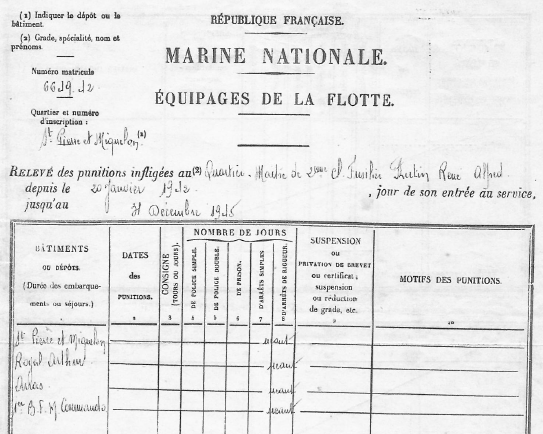 (1) Indiquer le dépôt ou le
bâtiment.
(2) Grade, spécialité, nom et
prénoms.
Numéro matricule
6619.42
Quartier et numéro
d'inscription :
St Pierre et Miquelon (2)
RÉPUBLIQUE FRANÇAISE.
MARINE NATIONALE.
ÉQUIPAGES DE LA FLOTTE.
RELEVÉ des punitions infligées au (2) Quartier-Maître de 2ème Cl. Fusilier René Alfred
depuis le 20 Janvier 1942 , jour de son entrée au service,
jusqu'au 31 Décembre 1945
BÂTIMENTS
OU DÉPÔTS.
(Durée des embarque-
ments ou séjours.)
DATES
des
PUNITIONS.
CONSIGNE
(TOURS OU JOURS).
NOMBRE DE JOURS
DE POLICE SIMPLE.
DE POLICE DOUBLE.
DE PRISON.
D'ARRÊTS SIMPLES
D'ARRÊTS DE RIGUEUR.
SUSPENSION
OU
PRIVATION DE BREVET
ou certificat;
suspension
ou réduction
de grade, etc.
MOTIFS DES PUNITIONS.
2 3 4 5 6 7 8 9 10
St Pierre et Miquelon néant
Royal Arthur néant
néant
1er B.F.M Commando néant